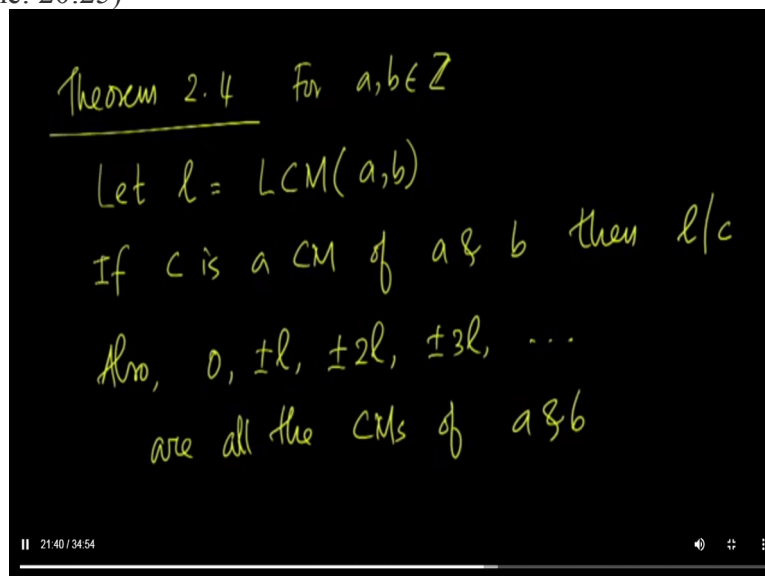 Theorem 2.4 For a,b∈Z
Let l = LCM(a,b)
If c is a CM of a & b then l/c
Also, 0, ±l, ±2l, ±3l, ...
are all the CMs of a & b
21:40 / 34:54